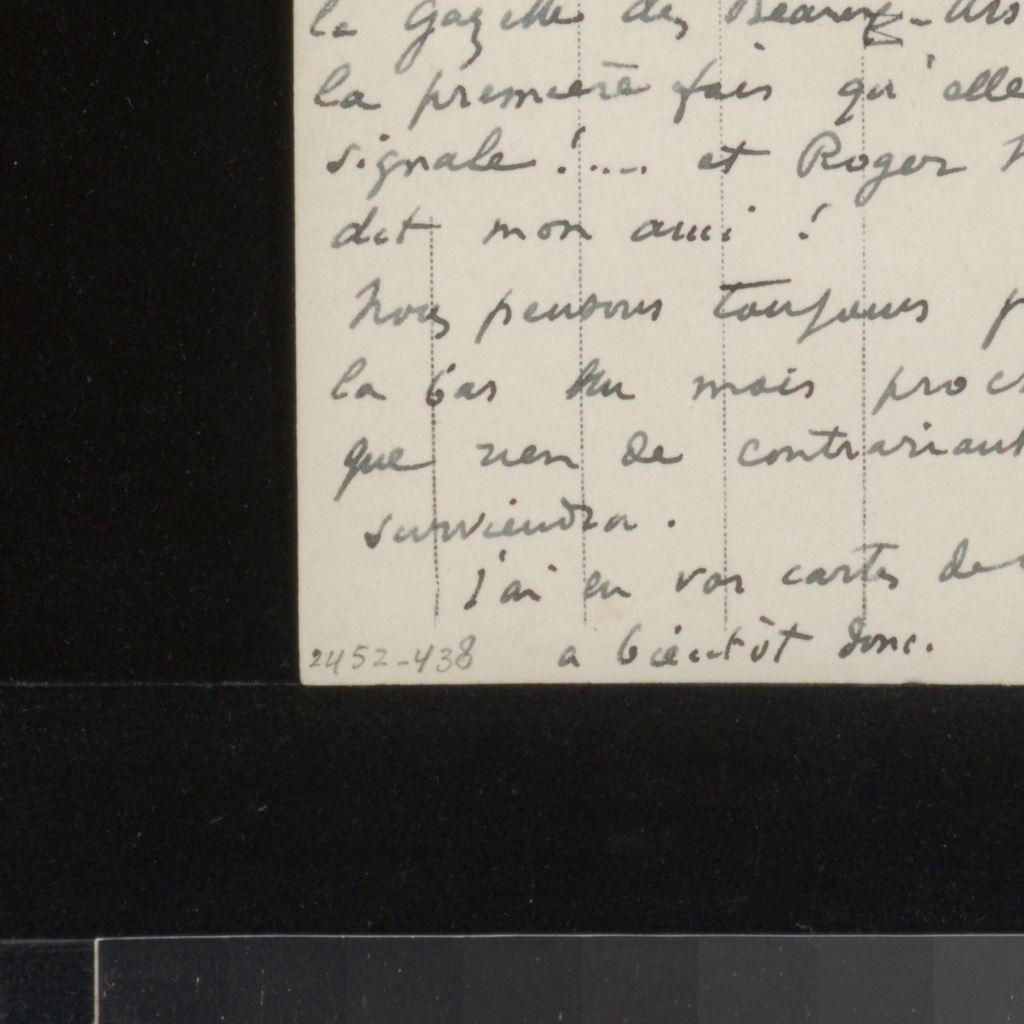 la Gazette des Beaux-Ars
la première fois qu'elle
signale !.... et Roger
dit mon ami !
Nous pensons toujours
la bas du mois
que rien de contrariant
surviendra.
J'ai eu vos cartes
a bientôt donc.
2452-438